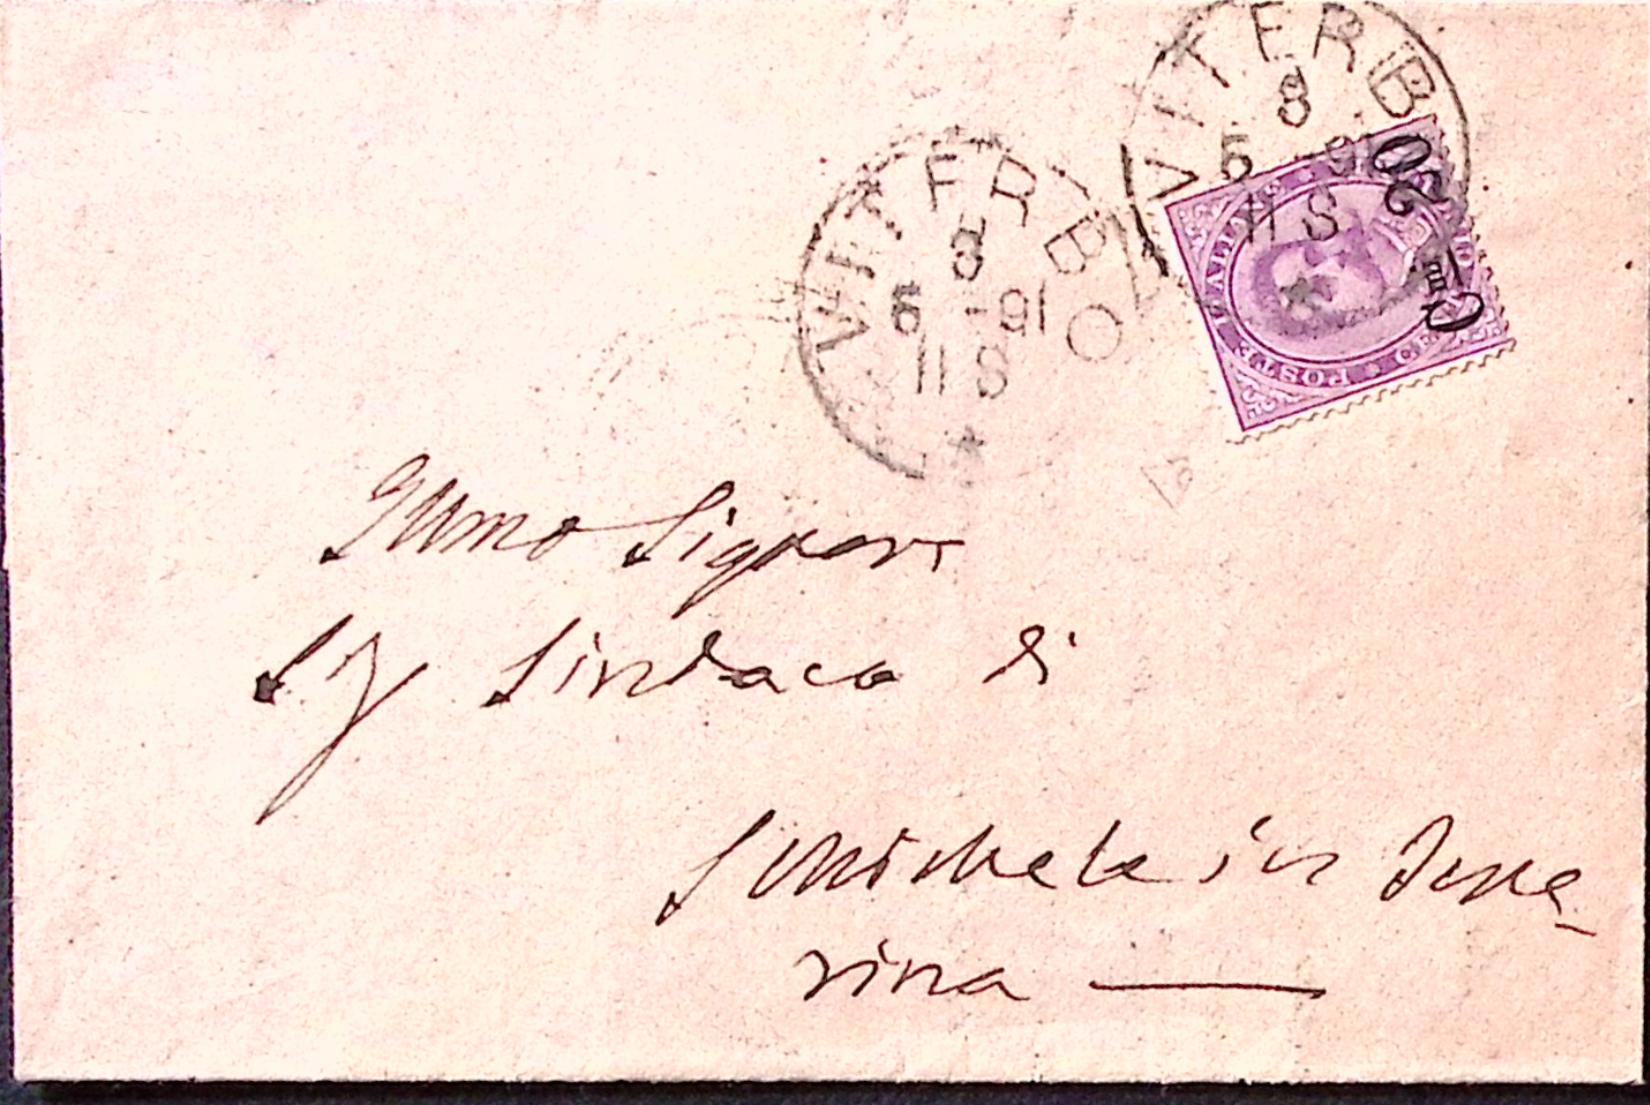 VITERBO
8
5 - 91
11 S
VITERBO
8
5 - 91
11 S
Cmi 20
POSTE ITALIANE
Illmo Signore
Sig Sindaco di
S Michele in Teve-
rina